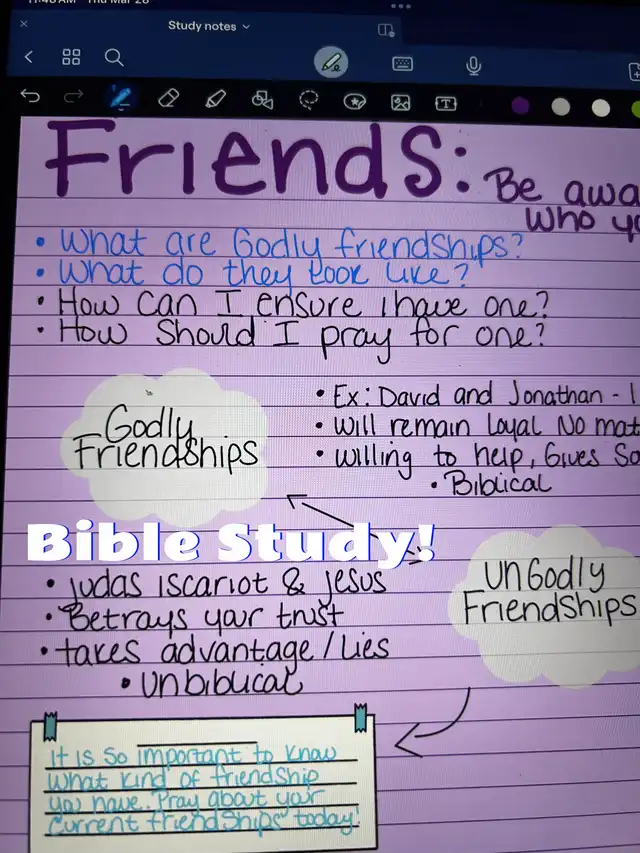 Thu Mar 28
Study notes
Friends: Be awa
who yo
• What are Godly friendships?
• What do they look like?
• How can I ensure I have one?
• How should I pray for one?
Godly
Friendships
• Ex: David and Jonathan - 1
• Will remain loyal No mat
• willing to help, Gives So
• Biblical
Bible Study!
• Judas Iscariot & Jesus
• Betrays your trust
• takes advantage / Lies
• Unbiblical
UnGodly
Friendships
It is so important to know
what kind of friendship
you have. Pray about your
current friendships today!